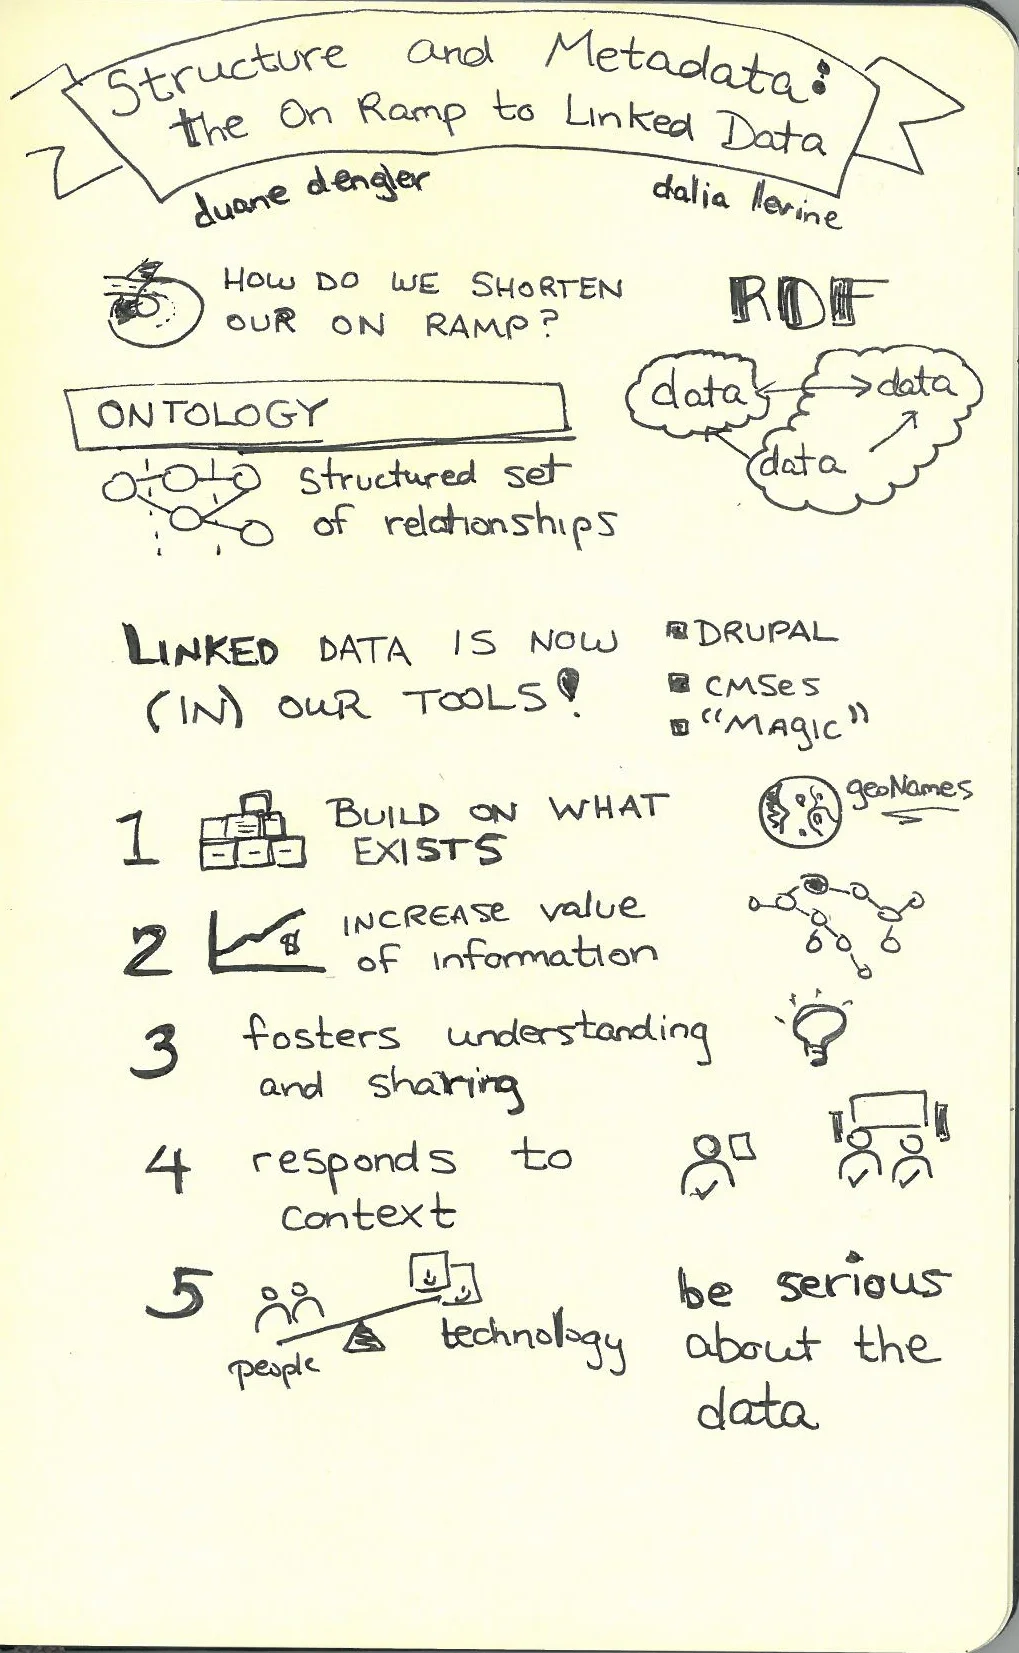 Structure and Metadata:
the On Ramp to Linked Data
duane dengler
dalia levine
HOW DO WE SHORTEN
OUR ON RAMP?
RDF
data
data
data
ONTOLOGY
structured set
of relationships
LINKED DATA IS NOW
(IN) OUR TOOLS!
DRUPAL
CMSes
"MAGIC"
1 BUILD ON WHAT
EXISTS
geoNames
2 INCREASE value
of information
$
3 fosters understanding
and sharing
4 responds to
context
5
people
technology
be serious
about the
data